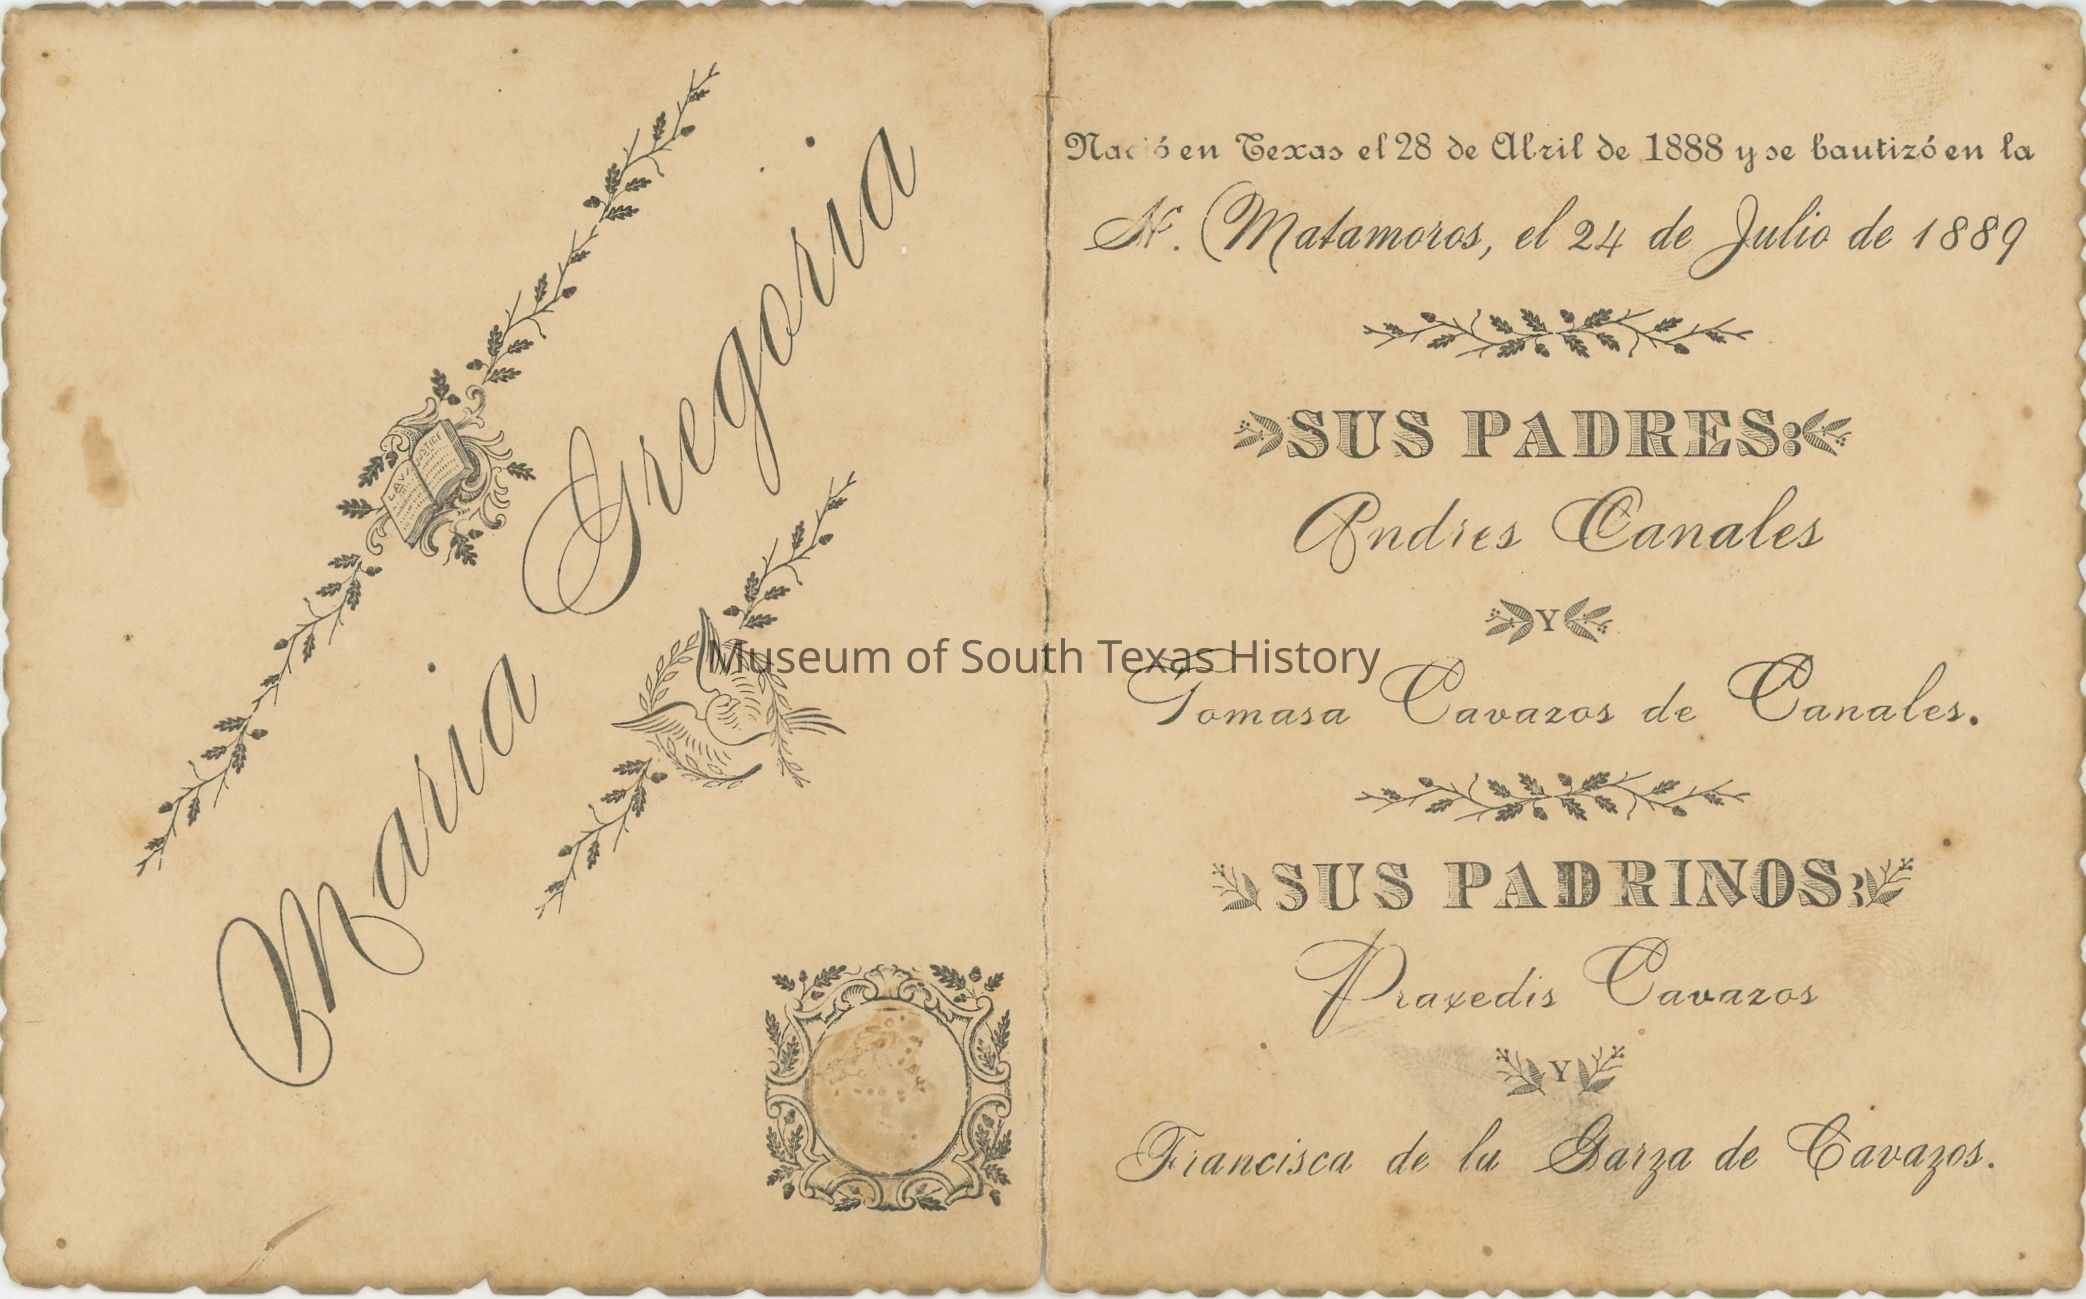 Maria Gregoria
LAW
JUSTICE
Nació en Texas el 28 de Abril de 1888 y se bautizó en la
H. Matamoros, el 24 de Julio de 1889
SUS PADRES:
Andres Canales
Y
Tomasa Cavazos de Canales.
SUS PADRINOS:
Praxedis Cavazos
Y
Francisca de la Garza de Cavazos.
Museum of South Texas History